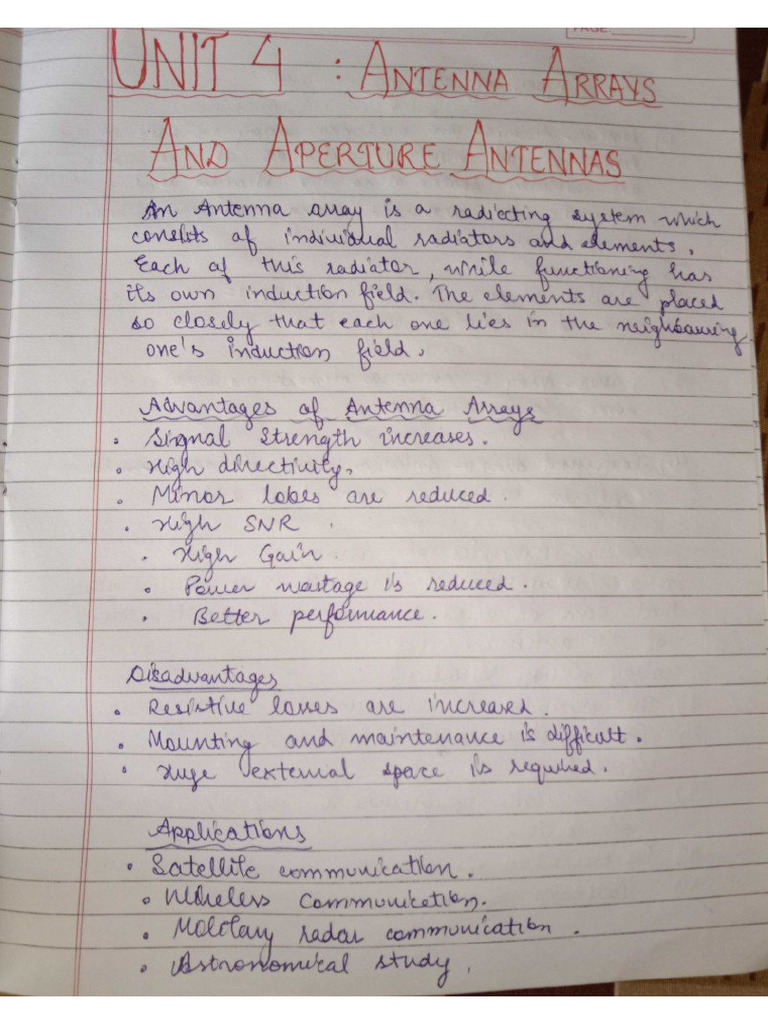 PAGE:
UNIT 4 : ANTENNA ARRAYS
AND APERTURE ANTENNAS
An Antenna array is a radiating system which
consists of individual radiators and elements.
Each of this radiator, while functioning has
its own induction field. The elements are placed
so closely that each one lies in the neighbouring
one's induction field.
Advantages of Antenna Arrays
• Signal strength increases.
• High directivity.
• Minor lobes are reduced.
• High SNR.
• High Gain.
• Power wastage is reduced.
• Better performance.
Disadvantages
• Resistive losses are increased.
• Mounting and maintenance is difficult.
• Huge external space is required.
Applications
• Satellite communication.
• Wireless communication.
• radar communication.
• Astronomical study.